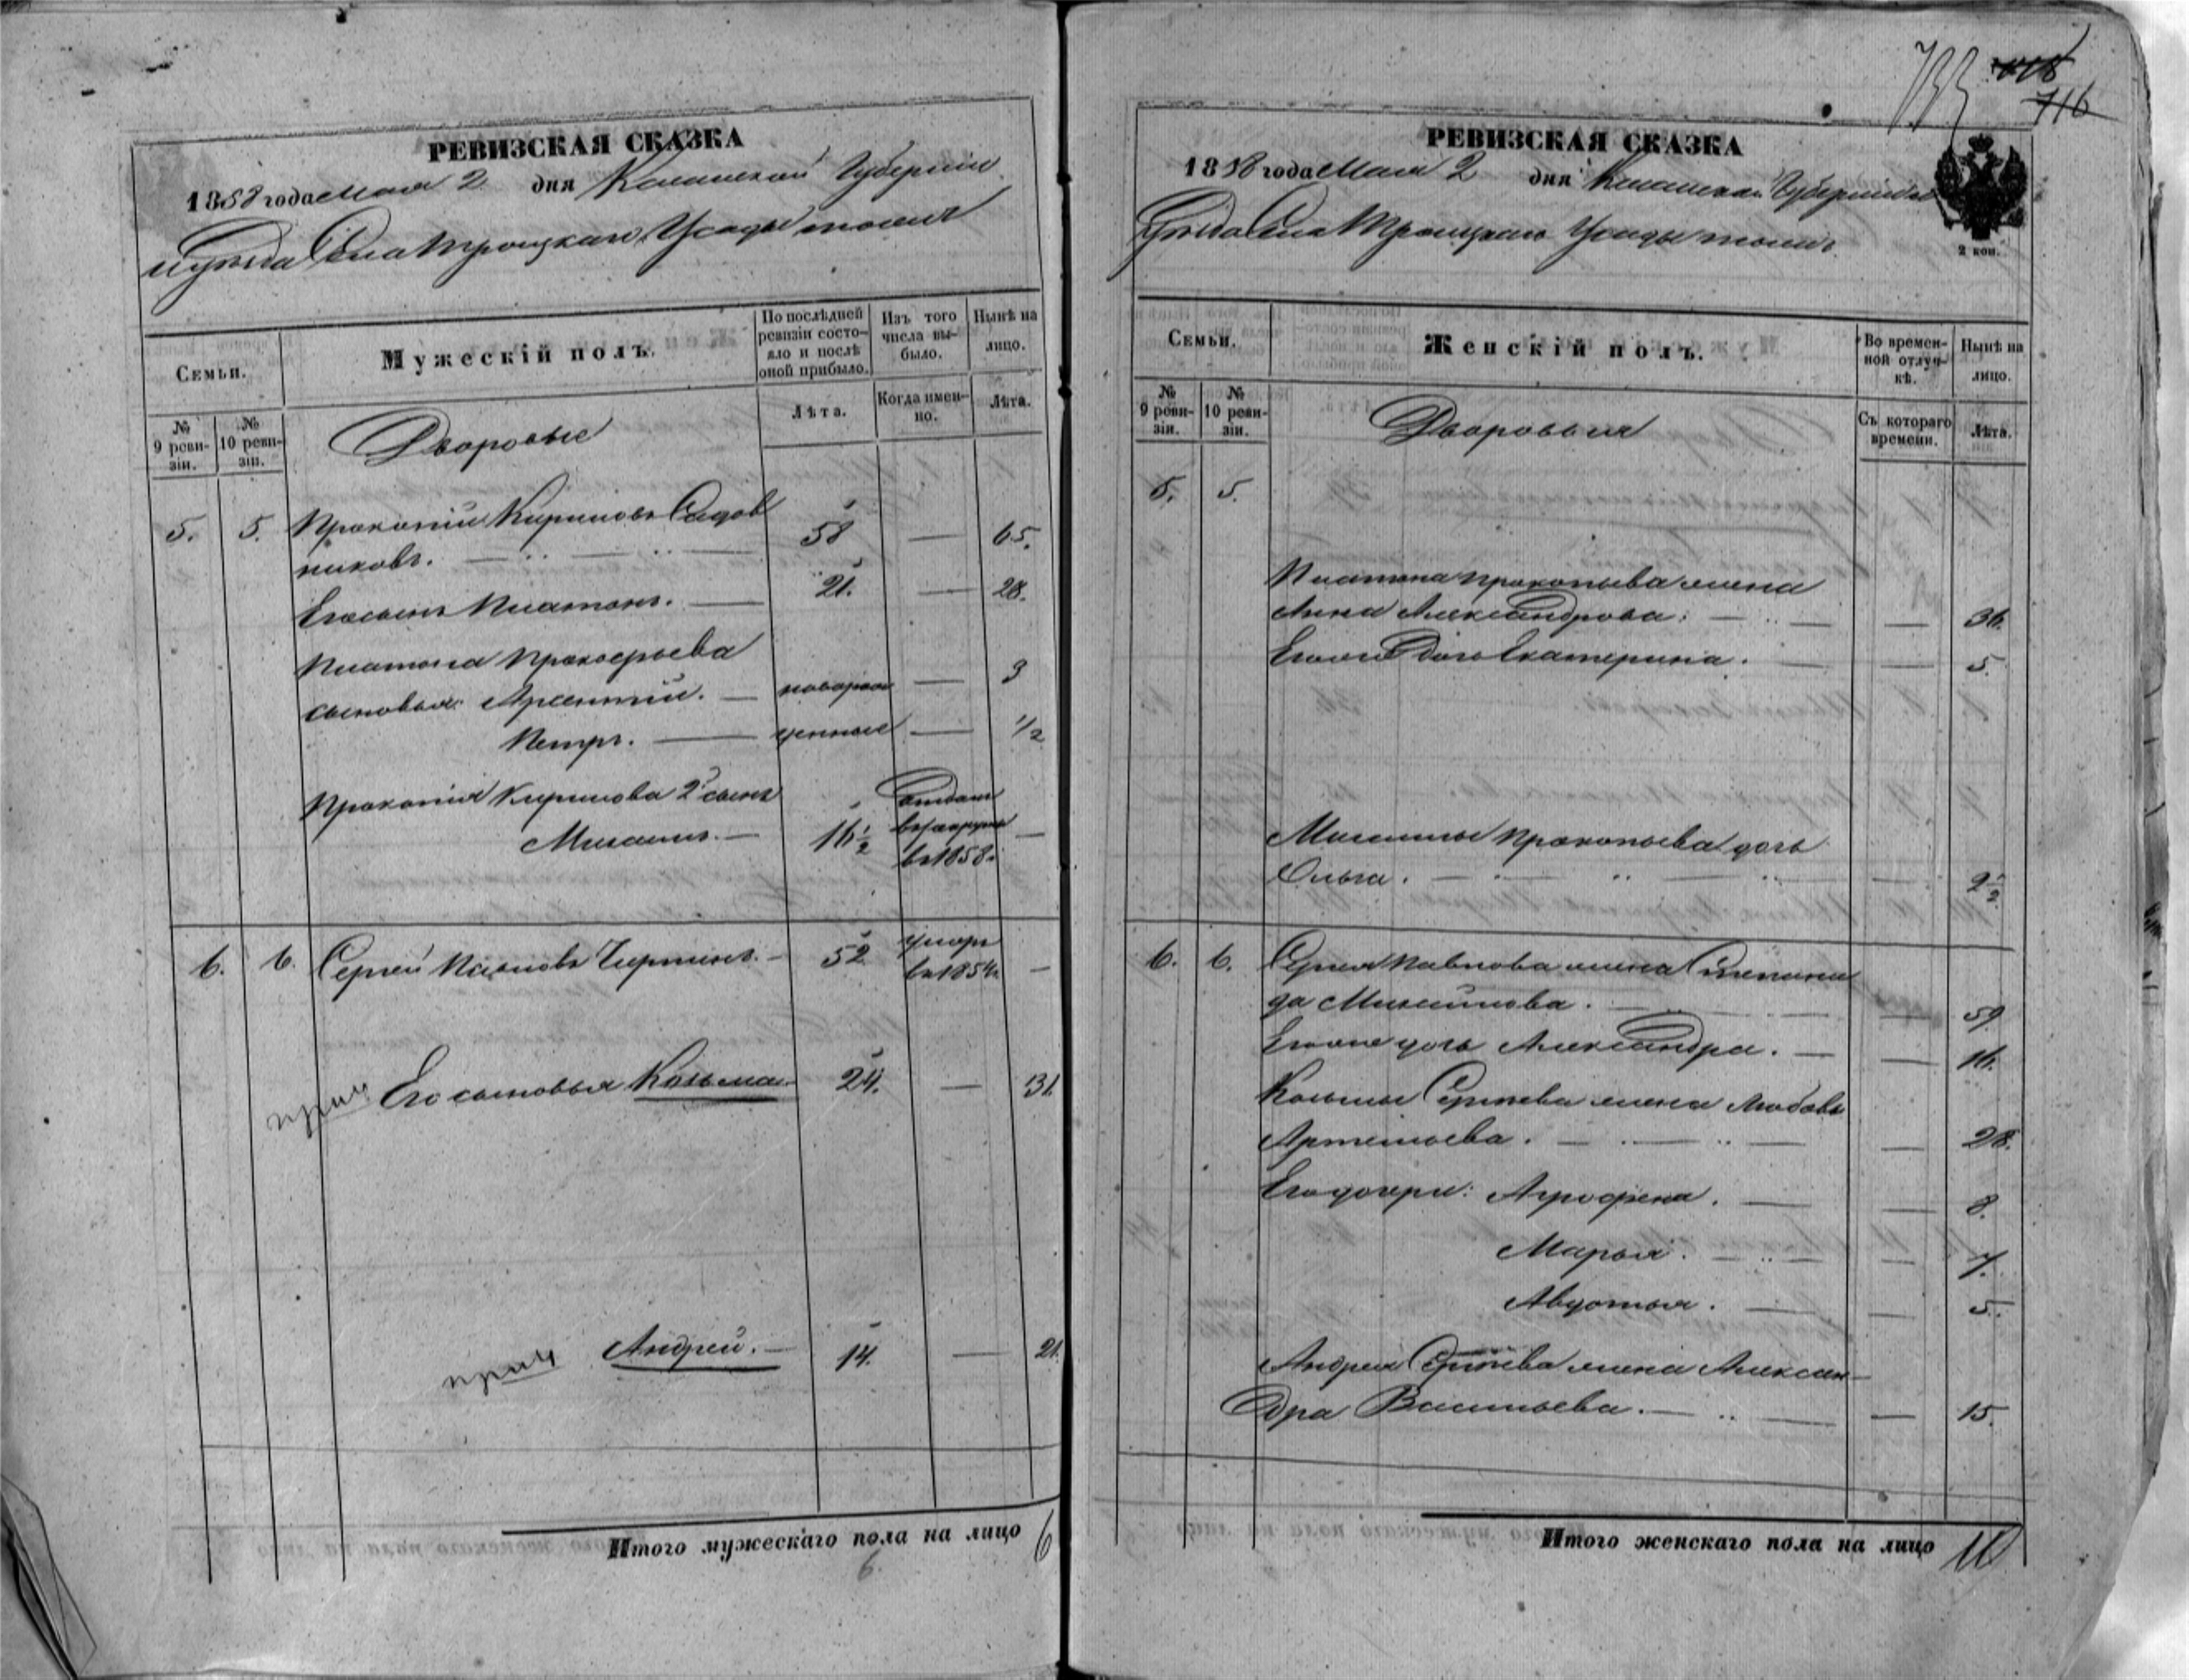 РЕВИЗСКАЯ СКАЗКА
1858 года Мая 2 дня Казанской Губерніи
Уѣзда Села Троицкаго Усады тожъ
Семьи.
Мужескій полъ.
По послѣдней ревизіи состо-
яло и послѣ
оной прибыло.
Изъ того
числа вы-
было.
Нынѣ на
лицо.
№
9 реви-
зіи.
№
10 реви-
зіи.
Дворовые
Лѣта.
Когда имен-
но.
Лѣта.
5. 5. Прокопій Кириловъ Садов 58 — 65.
никовъ.
Его сынъ Платонъ. — 21. — 28.
Платона Прокофьева
сыновья: Арсентій. — новорож — 3
Петръ. — денные — 1/2
Прокопія Кирилова 2й сынъ Отданъ
Михаилъ. — 16 1/2 въ рекруты —
въ 1858.
6. 6. Сергей Павловъ — 52 умеръ —
въ 1854.
Его сыновья Козьма — 24. — 31.
Андрей. — 14. — 21.
Итого мужескаго пола на лицо 6
6.
716
РЕВИЗСКАЯ СКАЗКА
1858 года Мая 2 дня Казанской Губерніи
Уѣзда Села Троицкаго Усады тожъ
2 коп.
Семьи.
Женскій полъ.
Во времен-
ной отлуч-
кѣ.
Нынѣ на
лицо.
№
9 реви-
зіи.
№
10 реви-
зіи.
Дворовыя
Съ котораго
времени.
Лѣта.
5. 5.
Платона Прокопьева жена
Анна Александрова: — — 36.
Его дочь Екатерина. — — 5.
Михаилы Прокопьева дочь
Ольга. — — 2 1/2
6. 6. Сергея Павлова жена Степани
да Михайлова. — — 59
Его дочь Александра. — — 16.
Козьмы Сергѣева жена Любовь
Артемьева. — — 28.
Его дочери: Агрофена. — — 8.
Марья. — — 7.
Авдотья. — — 5.
Андрея Сергѣева жена Алексан-
дра Васильева. — — 15.
Итого женскаго пола на лицо 10